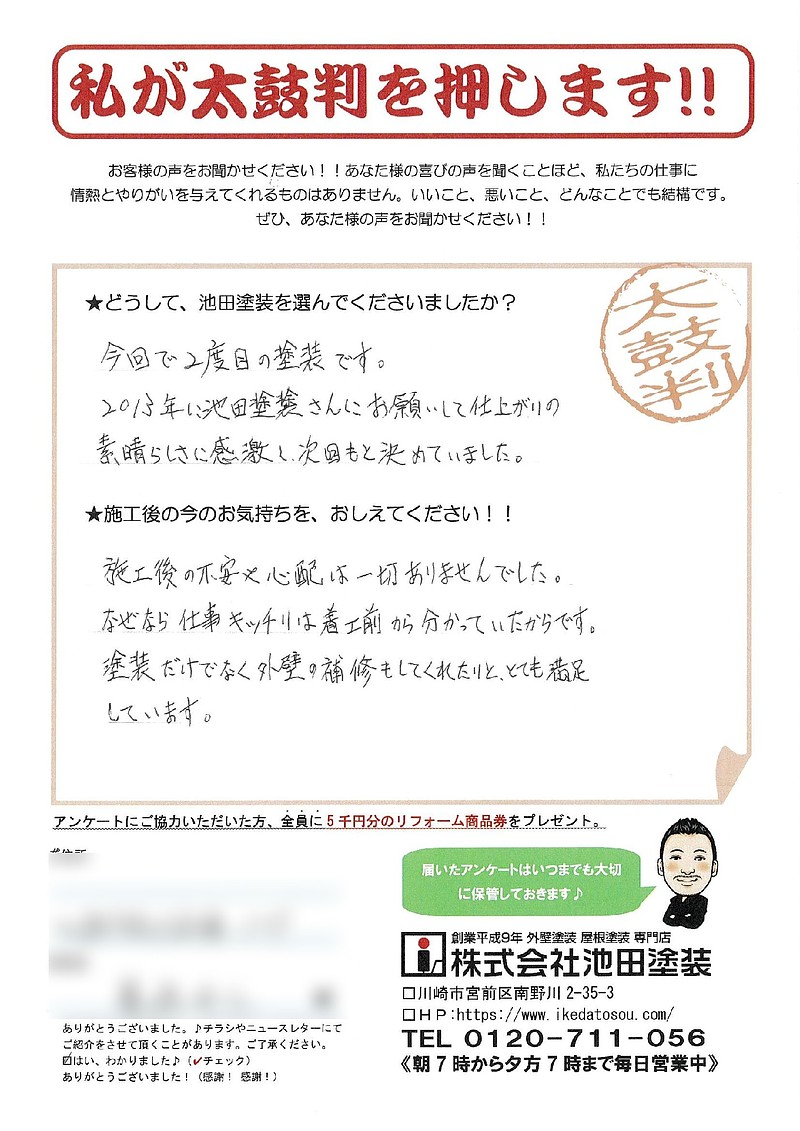 私が太鼓判を押します!!
お客様の声をお聞かせください！！あなた様の喜びの声を聞くことほど、私たちの仕事に
情熱とやりがいを与えてくれるものはありません。いいこと、悪いこと、どんなことでも結構です。
ぜひ、あなた様の声をお聞かせください！！
太鼓判
★どうして、池田塗装を選んでくださいましたか？
今回で2度目の塗装です。
2013年に池田塗装さんにお願いして仕上がりの
素晴らしさに感激し、次回もと決めていました。
★施工後の今のお気持ちを、おしえてください！！
施工後の不安や心配は一切ありませんでした。
なぜなら仕事キッチリは着工前から分かっていたからです。
塗装だけでなく外壁の補修もしてくれたりと、とても満足
しています。
アンケートにご協力いただいた方、全員に5千円分のリフォーム商品券をプレゼント。
届いたアンケートはいつまでも大切
に保管しておきます♪
創業平成9年 外壁塗装 屋根塗装 専門店
株式会社池田塗装
□川崎市宮前区南野川 2-35-3
□ＨＰ:https://www.ikedatosou.com/
TEL 0120-711-056
《朝7時から夕方7時まで毎日営業中》
ありがとうございました。♪チラシやニュースレターにて
ご紹介をさせて頂くことがあります。ご了承ください。
☑はい、わかりました♪（✓チェック）
ありがとうございました！（感謝！感謝！）